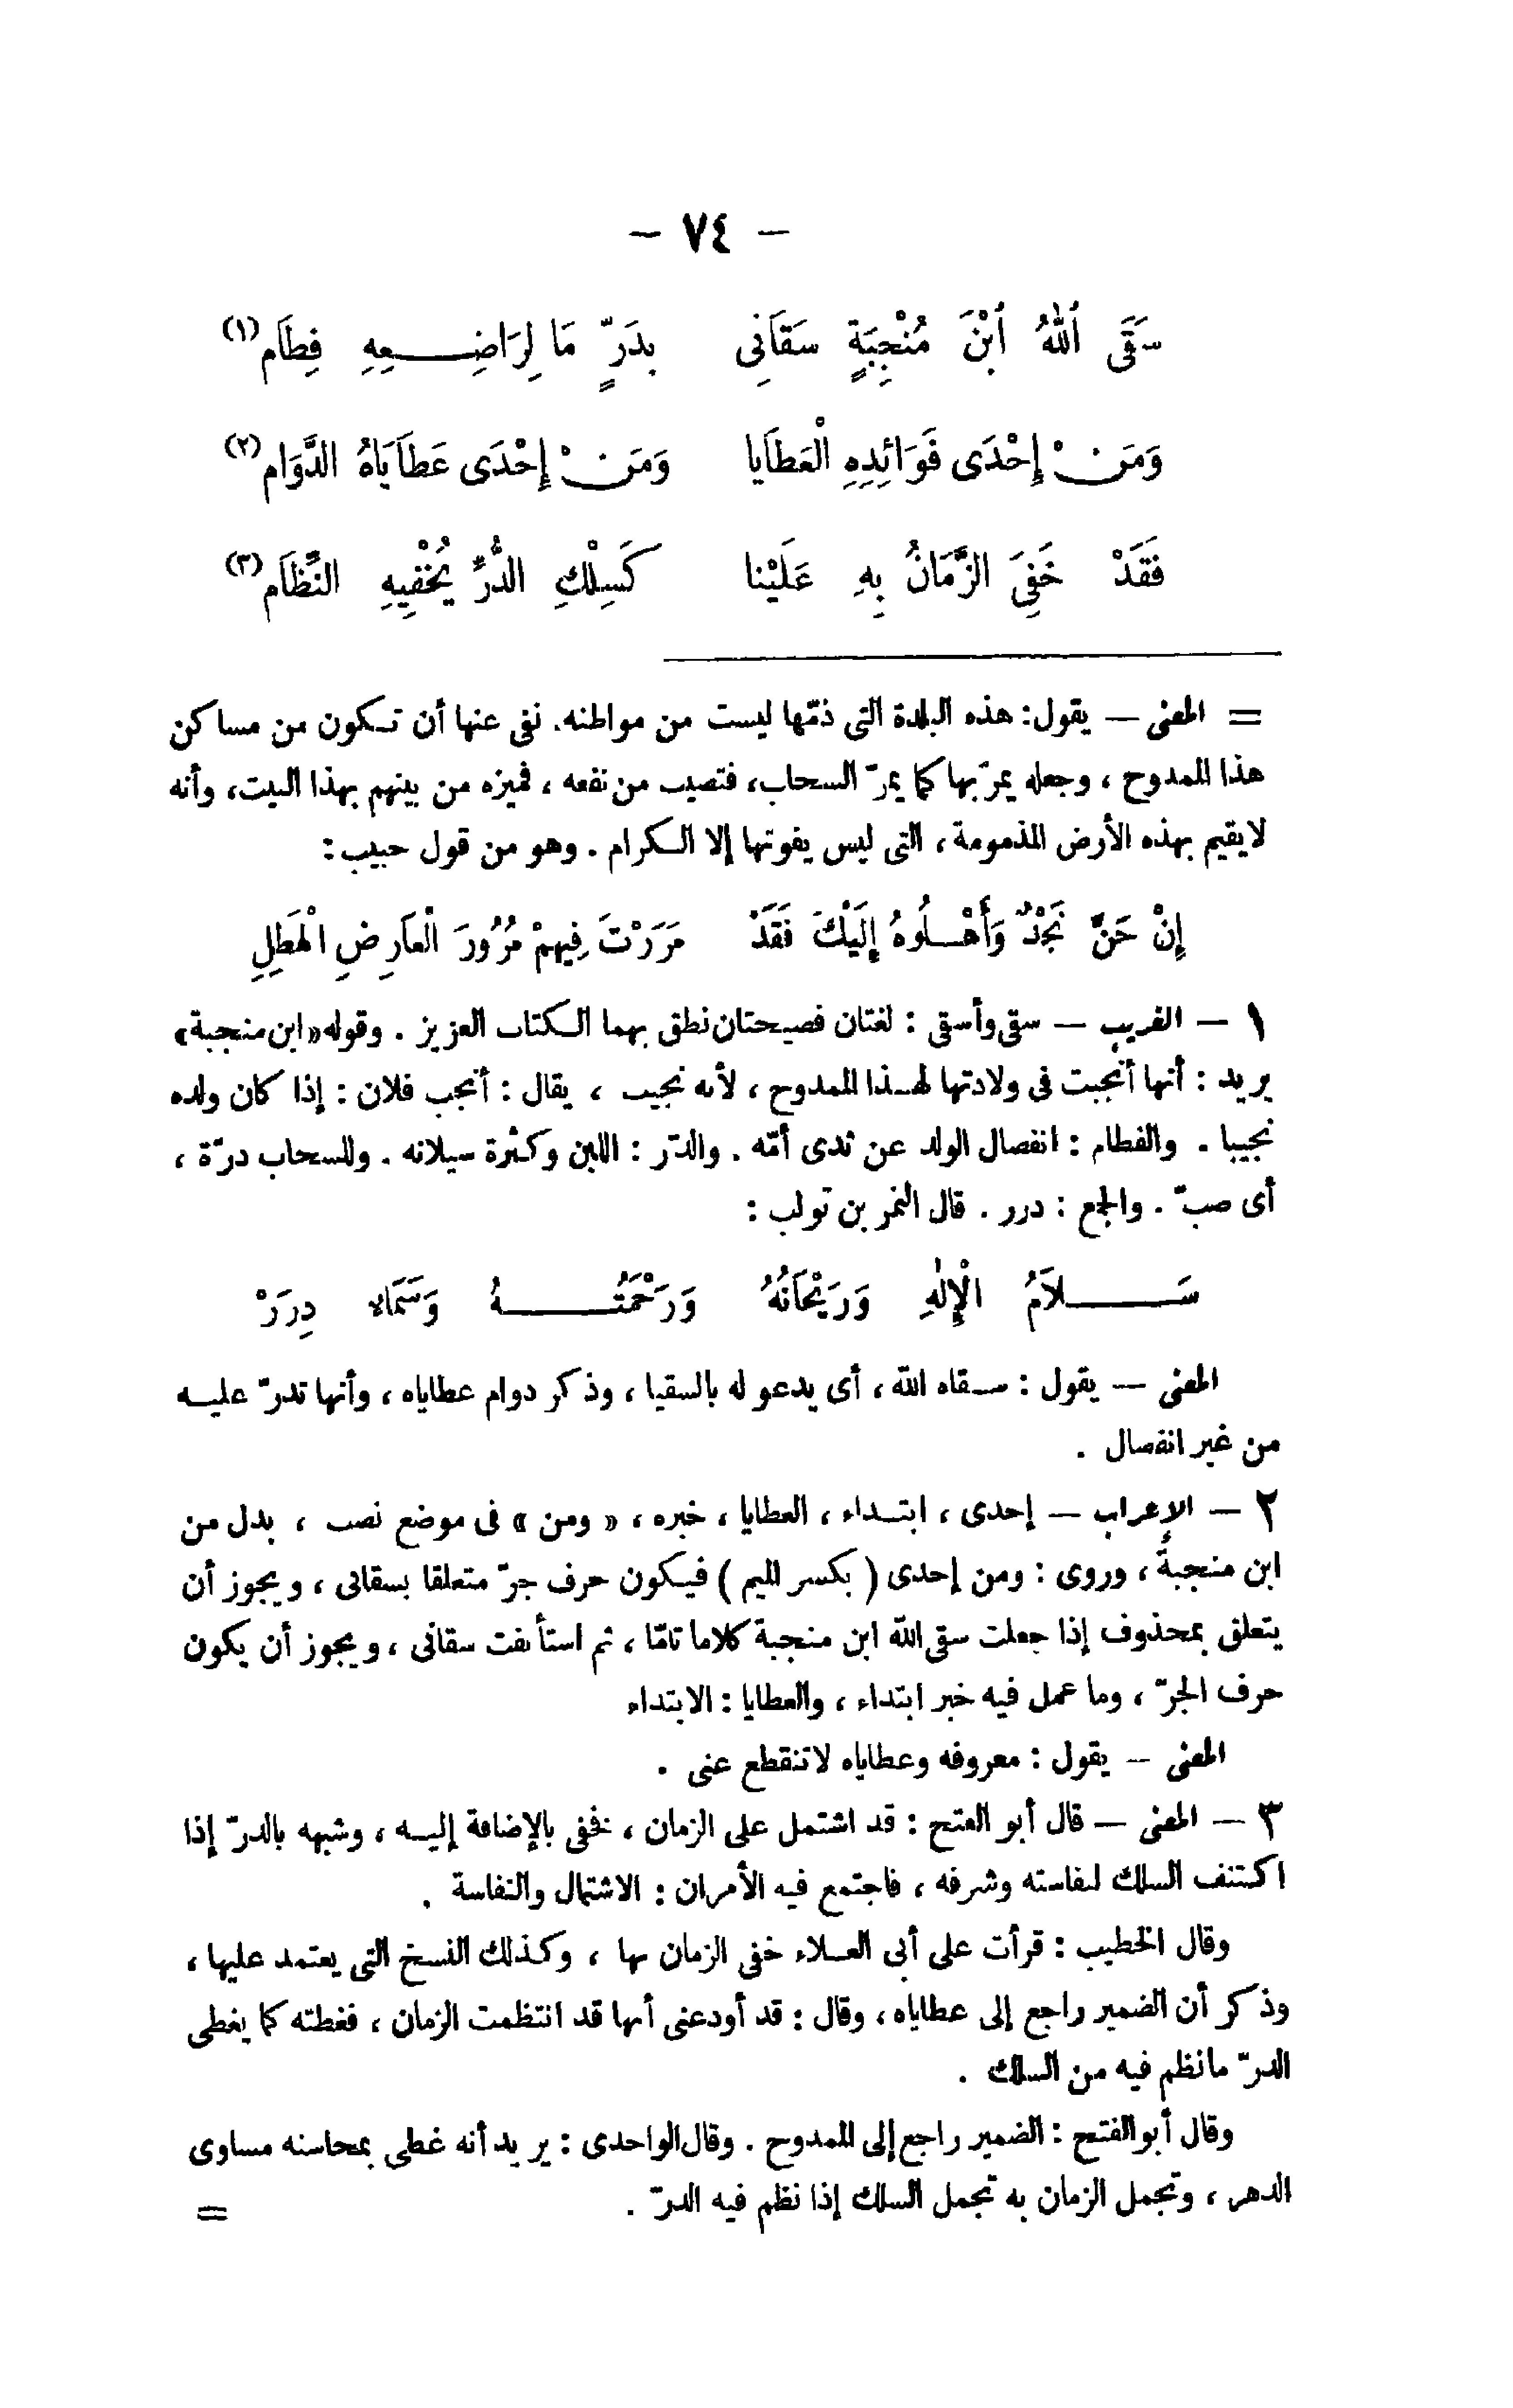 - ٧٤ -
سَقَى ٱللهُ ٱبْنَ مُنْجِبَةٍ سَقَانِى بِدَرٍّ مَا لِرَاضِعِهِ فِطَام(١)
وَمَنْ إِحْدَى فَوَائِدِهِ الْعَطَايا وَمَنْ إِحْدَى عَطَايَاهُ الدَّوَام(٢)
فَقَدْ خَفِىَ الزَّمَانُ بِهِ عَلَيْنا كَسِلْكِ الدُّرِّ يُخْفِيهِ النِّظَام(٣)
= المعنى — يقول: هذه البلدة التى ذمّها ليست من مواطنه. نفى عنها أن تكون من مساكن
هذا الممدوح ، وجعله يمرّ بها كما يمرّ السحاب، فتصيب من نفعه ، فميزه من بينهم بهذا البيت، وأنه
لايقيم بهذه الأرض المذمومة، التى ليس يفوتها إلا الكرام . وهو من قول حبيب:
إِنْ حَنَّ نَجْدٌ وَأَهْلُوهُ إِلَيْكَ فَقَدْ مَرَرْتَ فِيهِمْ مُرُورَ الْعَارِضِ الْهَطِلِ
١ — الغريب — سقى وأسقى : لغتان فصيحتان نطق بهما الكتاب العزيز . وقوله «ابن منجبة»
يريد : أنها أنجبت فى ولادتها لهذا الممدوح ، لأنه نجيب ، يقال : أنجب فلان : إذا كان ولده
نجيبا . والفطام : انفصال الولد عن ثدى أمّه . والدّر : اللبن وكثرة سيلانه . وللسحاب درّة ،
أى صبّ . والجمع : درر . قال النمر بن تولب :
سَلاَمُ الْإِلٰهِ وَرَيْحَانُهُ وَرَحْمَتُهُ وَسَمَاء دِرَرْ
المعنى — يقول : سقاه الله ، أى يدعو له بالسقيا ، وذكر دوام عطاياه ، وأنها تدرّ عليه
من غير انفصال .
٢ — الإعراب — إحدى ، ابتداء ، العطايا ، خبره ، « ومن » فى موضع نصب ، بدل من
ابن منجبة ، وروى : ومن إحدى ( بكسر الميم ) فيكون حرف جرّ متعلقا بسقانى ، ويجوز أن
يتعلق بمحذوف إذا جعلت سقى الله ابن منجبة كلاما تامّا ، ثم استأنفت سقانى ، ويجوز أن يكون
حرف الجرّ ، وما عمل فيه خبر ابتداء ، والعطايا : الابتداء
المعنى — يقول : معروفه وعطاياه لاتنقطع عنى .
٣ — المعنى — قال أبو الفتح : قد اشتمل على الزمان ، نخفى بالإضافة إليه ، وشبهه بالدرّ إذا
اكتنف السلك لنفاسته وشرفه ، فاجتمع فيه الأمران : الاشتمال والنفاسة .
وقال الخطيب : قرأت على أبى العلاء خفى الزمان بها ، وكذلك النسخ التى يعتمد عليها ،
وذكر أن الضمير راجع إلى عطاياه ، وقال : قد أودعنى أنها قد انتظمت الزمان ، فغطته كما يغطى
الدرّ مانظم فيه من السلك .
وقال أبو الفتح : الضمير راجع إلى الممدوح . وقال الواحدى : يريد أنه غطى بمحاسنه مساوى
الدهر ، وتجمل الزمان به تجمل السلك إذا نظم فيه الدرّ .
=